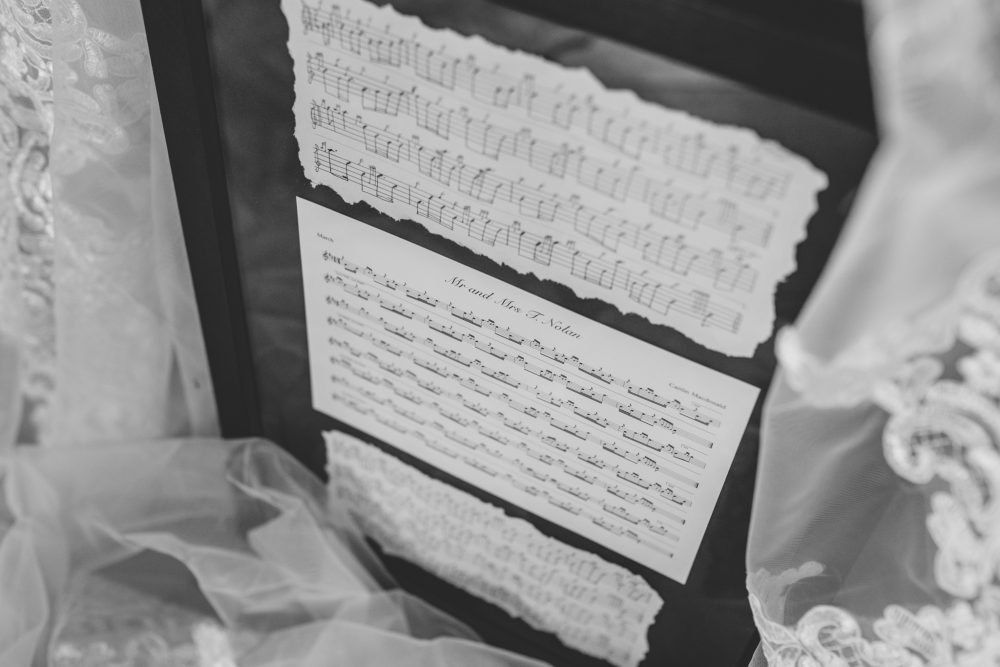 March
Mr and Mrs T. Nolan
Caitlin Macdonald